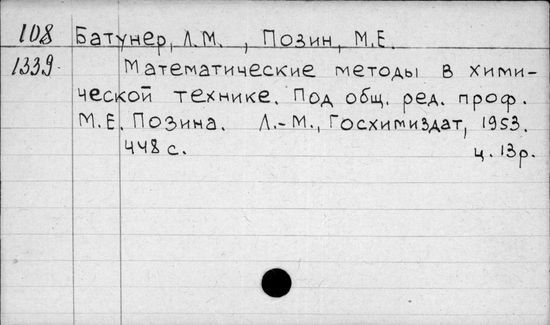 108 Батунер, Л.М. , Позин, М.Е.
1339. Математические методы в хими-
ческой технике. Под общ. ред. проф.
М.Е. Позина. Л.-М., Госхимиздат, 1953.
448 с. ц. 13р.